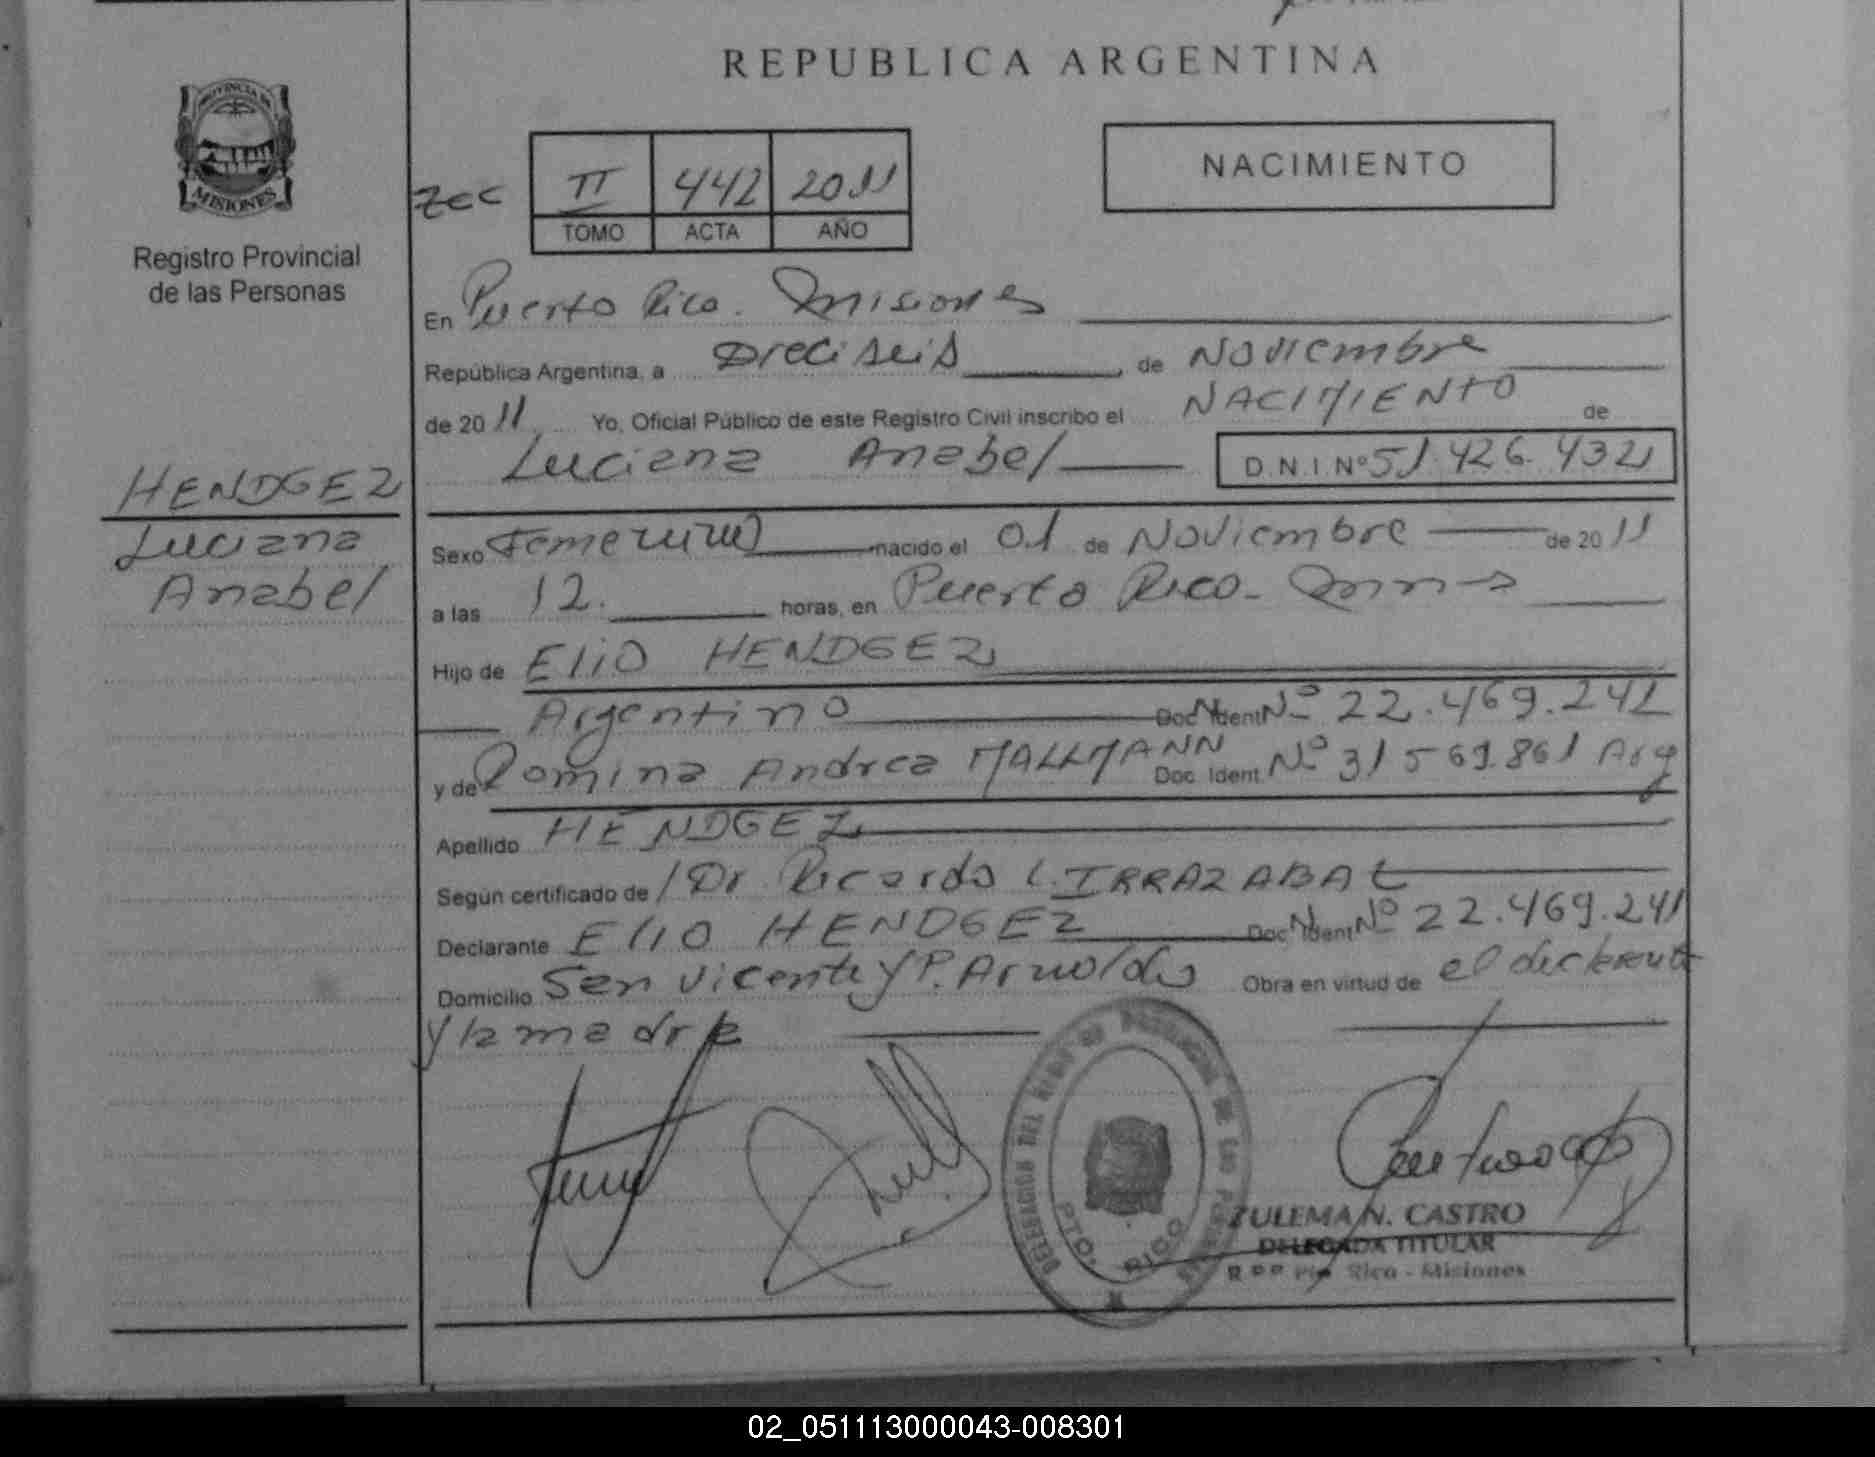 REPUBLICA ARGENTINA
PROVINCIA DE
MISIONES
Registro Provincial
de las Personas
NACIMIENTO
II 442 2011
TOMO ACTA AÑO
En Puerto Rico. Misiones
República Argentina, a Dieciseis, de Noviembre
de 2011 Yo, Oficial Público de este Registro Civil inscribo el NACIMIENTO de
Luciana Anabel D.N.I.Nº 51.426.432
HENDGEZ
Luciana
Anabel
Sexo Femenino nacido el 01 de Noviembre de 2011
a las 12. horas, en Puerto Rico-
Hijo de Elio HENDGEZ
Argentino Doc. Ident. Nº 22.469.241
y de Romina Andrea MALLMANN Doc. Ident. Nº 31569.861 Arg
Apellido HENDGEZ
Según certificado de Dr Ricardo L. IRRAZABAL
Declarante Elio HENDGEZ Doc. Ident. Nº 22.469.241
Domicilio San Vicente y P. Arnoldo Obra en virtud de el declarante
y la madre
DELEGACION DEL REGISTRO PROVINCIAL DE LAS PERSONAS
PTO. RICO
ZULEMA N. CASTRO
DELEGADA TITULAR
R.P.P. Pto. Rico - Misiones
02_051113000043-008301